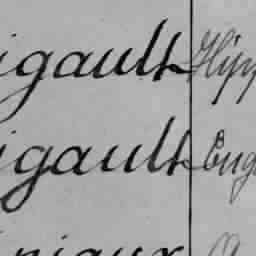 igault Hipp
igault Eug
niaux